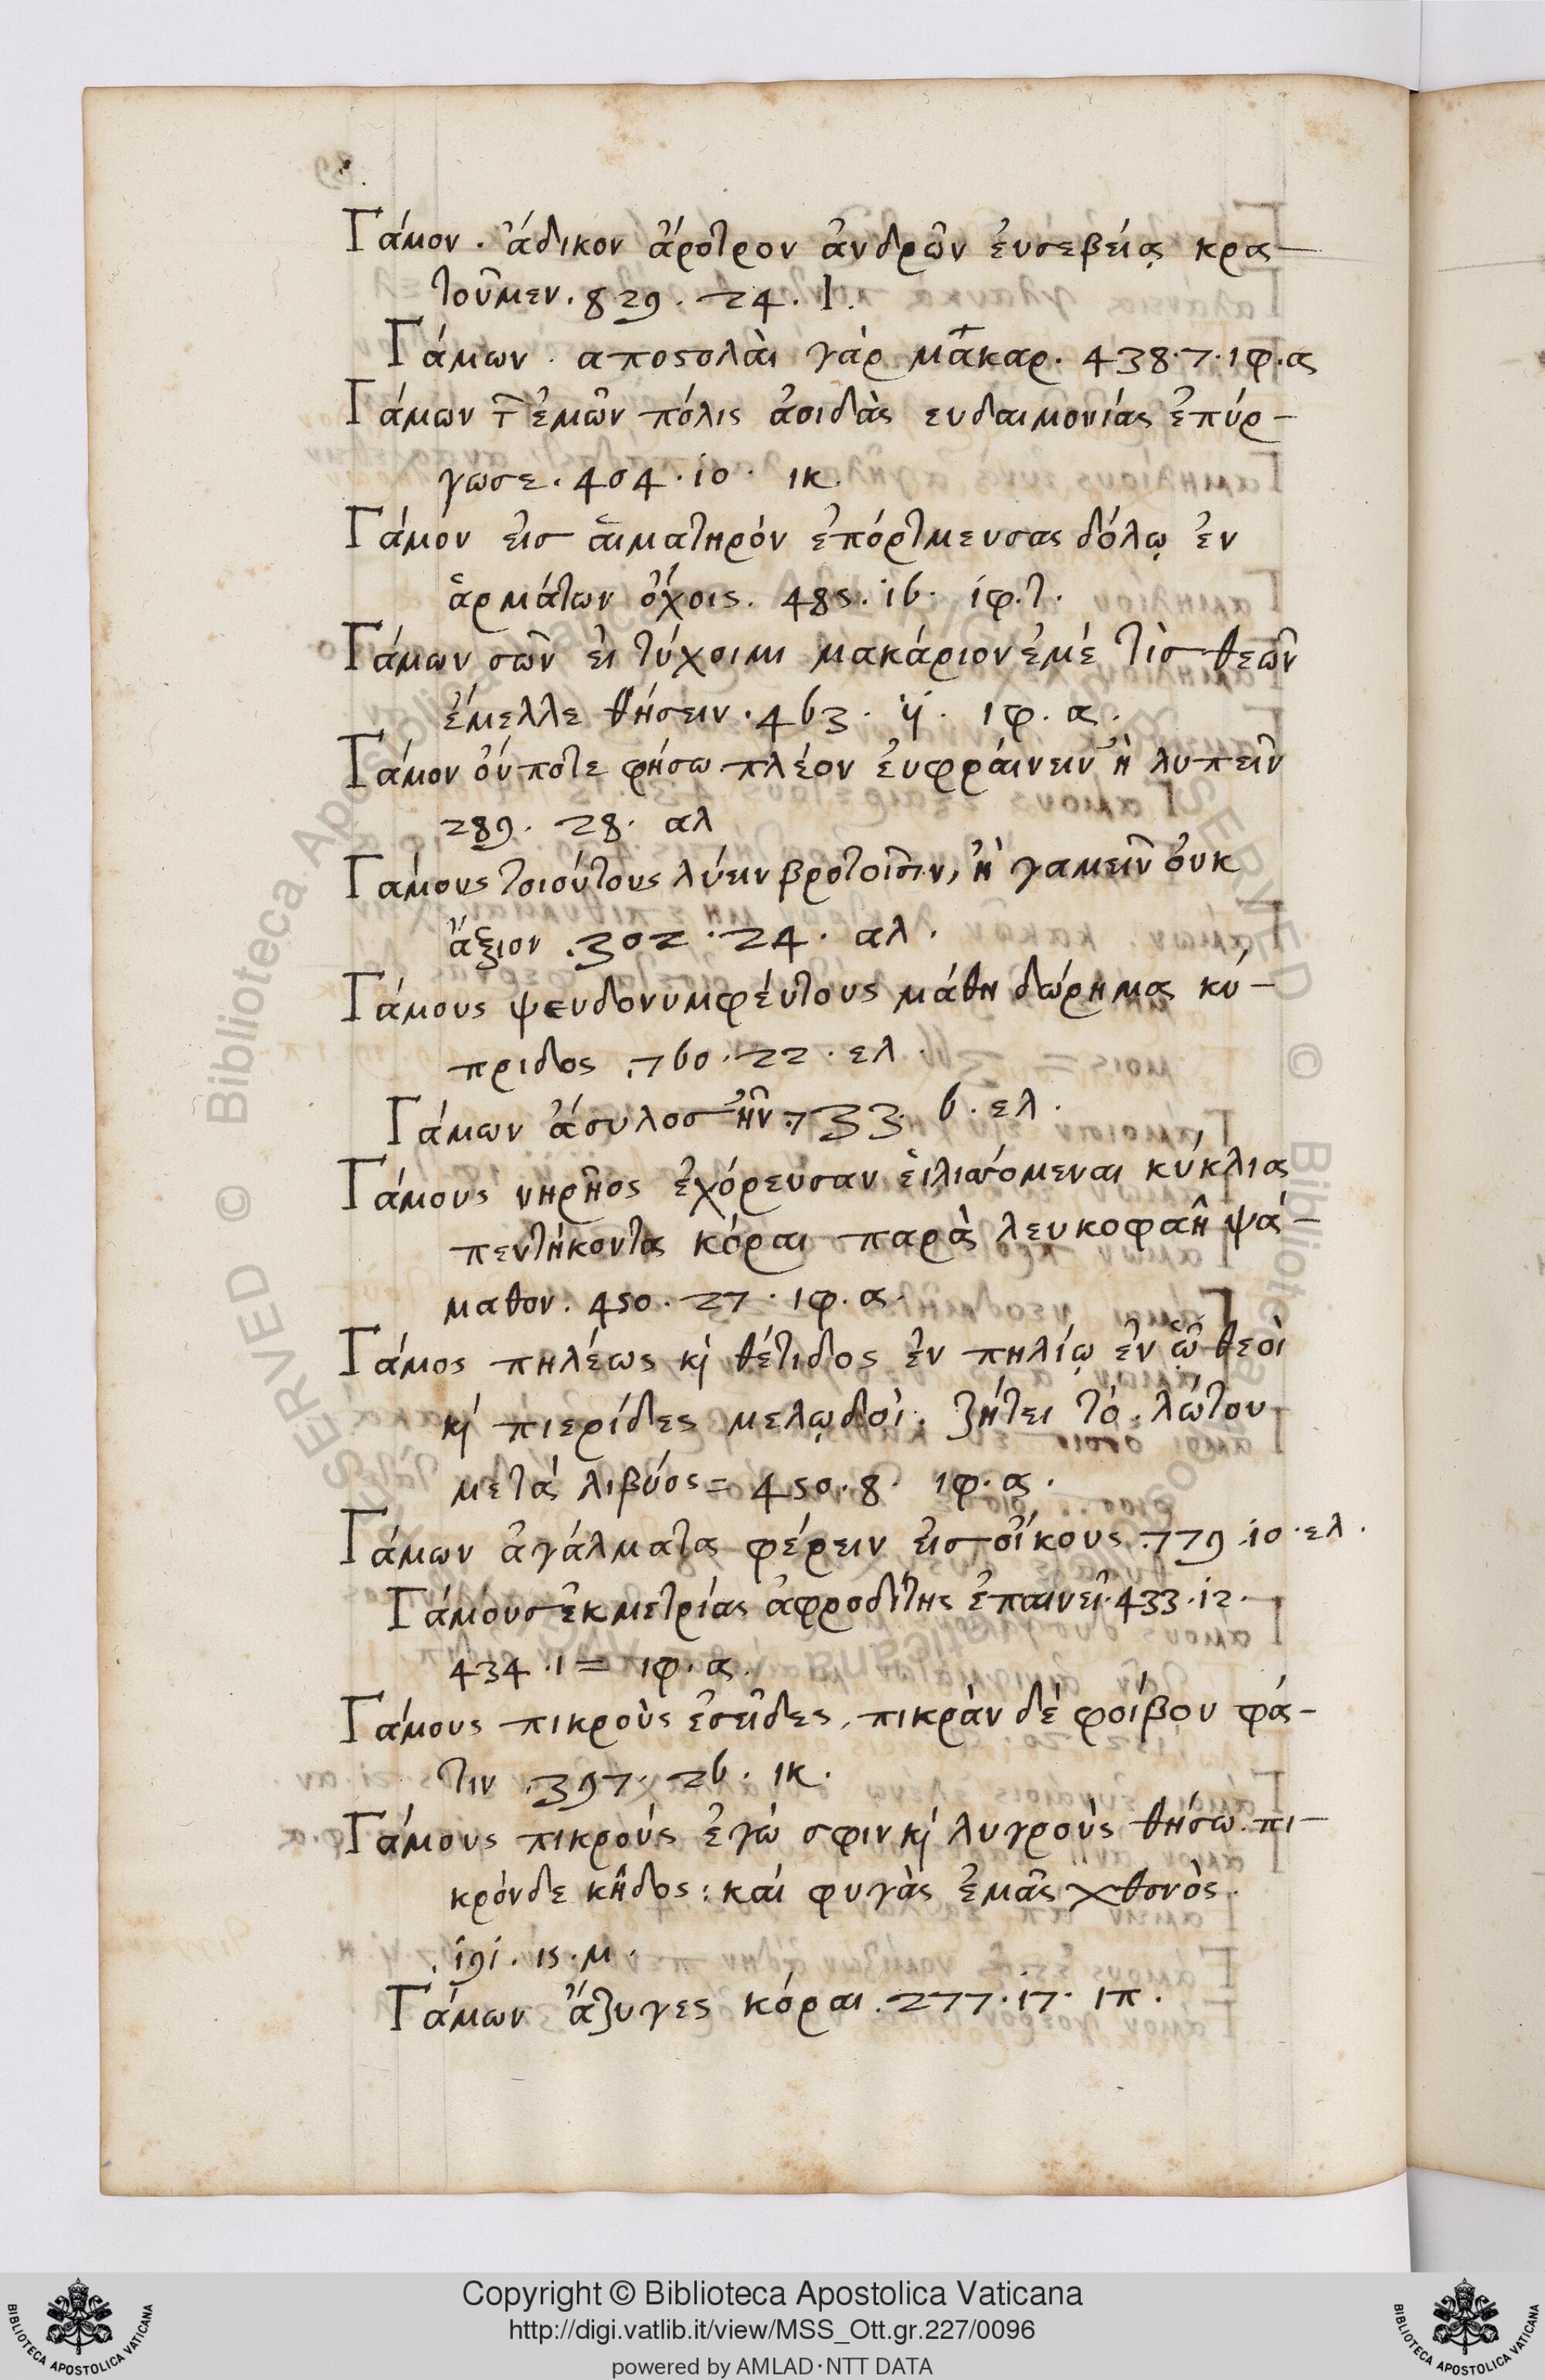 Γάμον . άδικον άροτρον ἀνδρῶν ἐυσεβείας κρα-
τοῦμεν. 829. 24. Ι.
Γάμων . αποςολὰι γὰρ μακαρ. 438.7. ιφ.α
Γάμων τ ἐμῶν πόλις ἀοιδὰς ευδαιμονίας ἐπύρ-
γωσε. 404. 10. ικ.
Γάμον εἰσ ἁιματηρόν ἐπόρτμευσας δόλῳ ἐν
ἁρμάτων ὄχοις. 485. 16. ιφ.τ.
Γάμων σῶν ἐι τύχοιμι μακάριον ἐμέ τὶσ θεῶν
ἔμελλε θήσειν. 463. 4. ιφ. α.
Γάμον ὄυποτε φήσω πλέον ἐυφράινειν ἢ λυπεῖν
289. 28. αλ
Γαμους τοιούτους λύειν βροτοῖσιν, ἢ γαμεῖν ὀυκ
ἄξιον . 302. 24. αλ.
Γάμους ψευδονυμφέυτους μάθη δώρημα κύ-
πριδος . 760. 22. ελ.
Γάμων άσυλοσ ἦν. 733. 6. ελ.
Γάμους νηρῆος ἐχόρευσαν ἑιλισσόμεναι κύκλια
πεντήκοντα κόραι παρὰ λευκοφαῆ ψά-
μαθον. 450. 27. ιφ. α.
Γάμος πηλέως κὶ θέτιδος ἐν πηλίῳ ἐν ᾧ θεοὶ
κὶ πιερίδες μελῳδοὶ. ζήτει τό. λώτου
μετά λιβύος = 450. 8. ιφ. α.
Γάμων ἀγάλματα φέρειν ἐισ ὄικους. 779. 10. ελ.
Γάμουσ ἐκμετρίας ἀφροδίτης ἐπαινεῖ. 433. 12.
434. 1 = ιφ. α.
Γάμους πικροὺς ἐσεῖδες, πικρὰν δὲ φοίβου φά-
τιν . 397. 26. ικ.
Γάμους πικρούς ἐγώ σφιν κὶ λυγροὺς θήσω. πι-
κρόνδε κῆδος : καί φυγὰς ἐμᾶς χθονὸς.
191. 15. μ.
Γάμων ἄζυγες κόραι. 277. 17. ιπ.
Copyright © Biblioteca Apostolica Vaticana
http://digi.vatlib.it/view/MSS_Ott.gr.227/0096
powered by AMLAD·NTT DATA